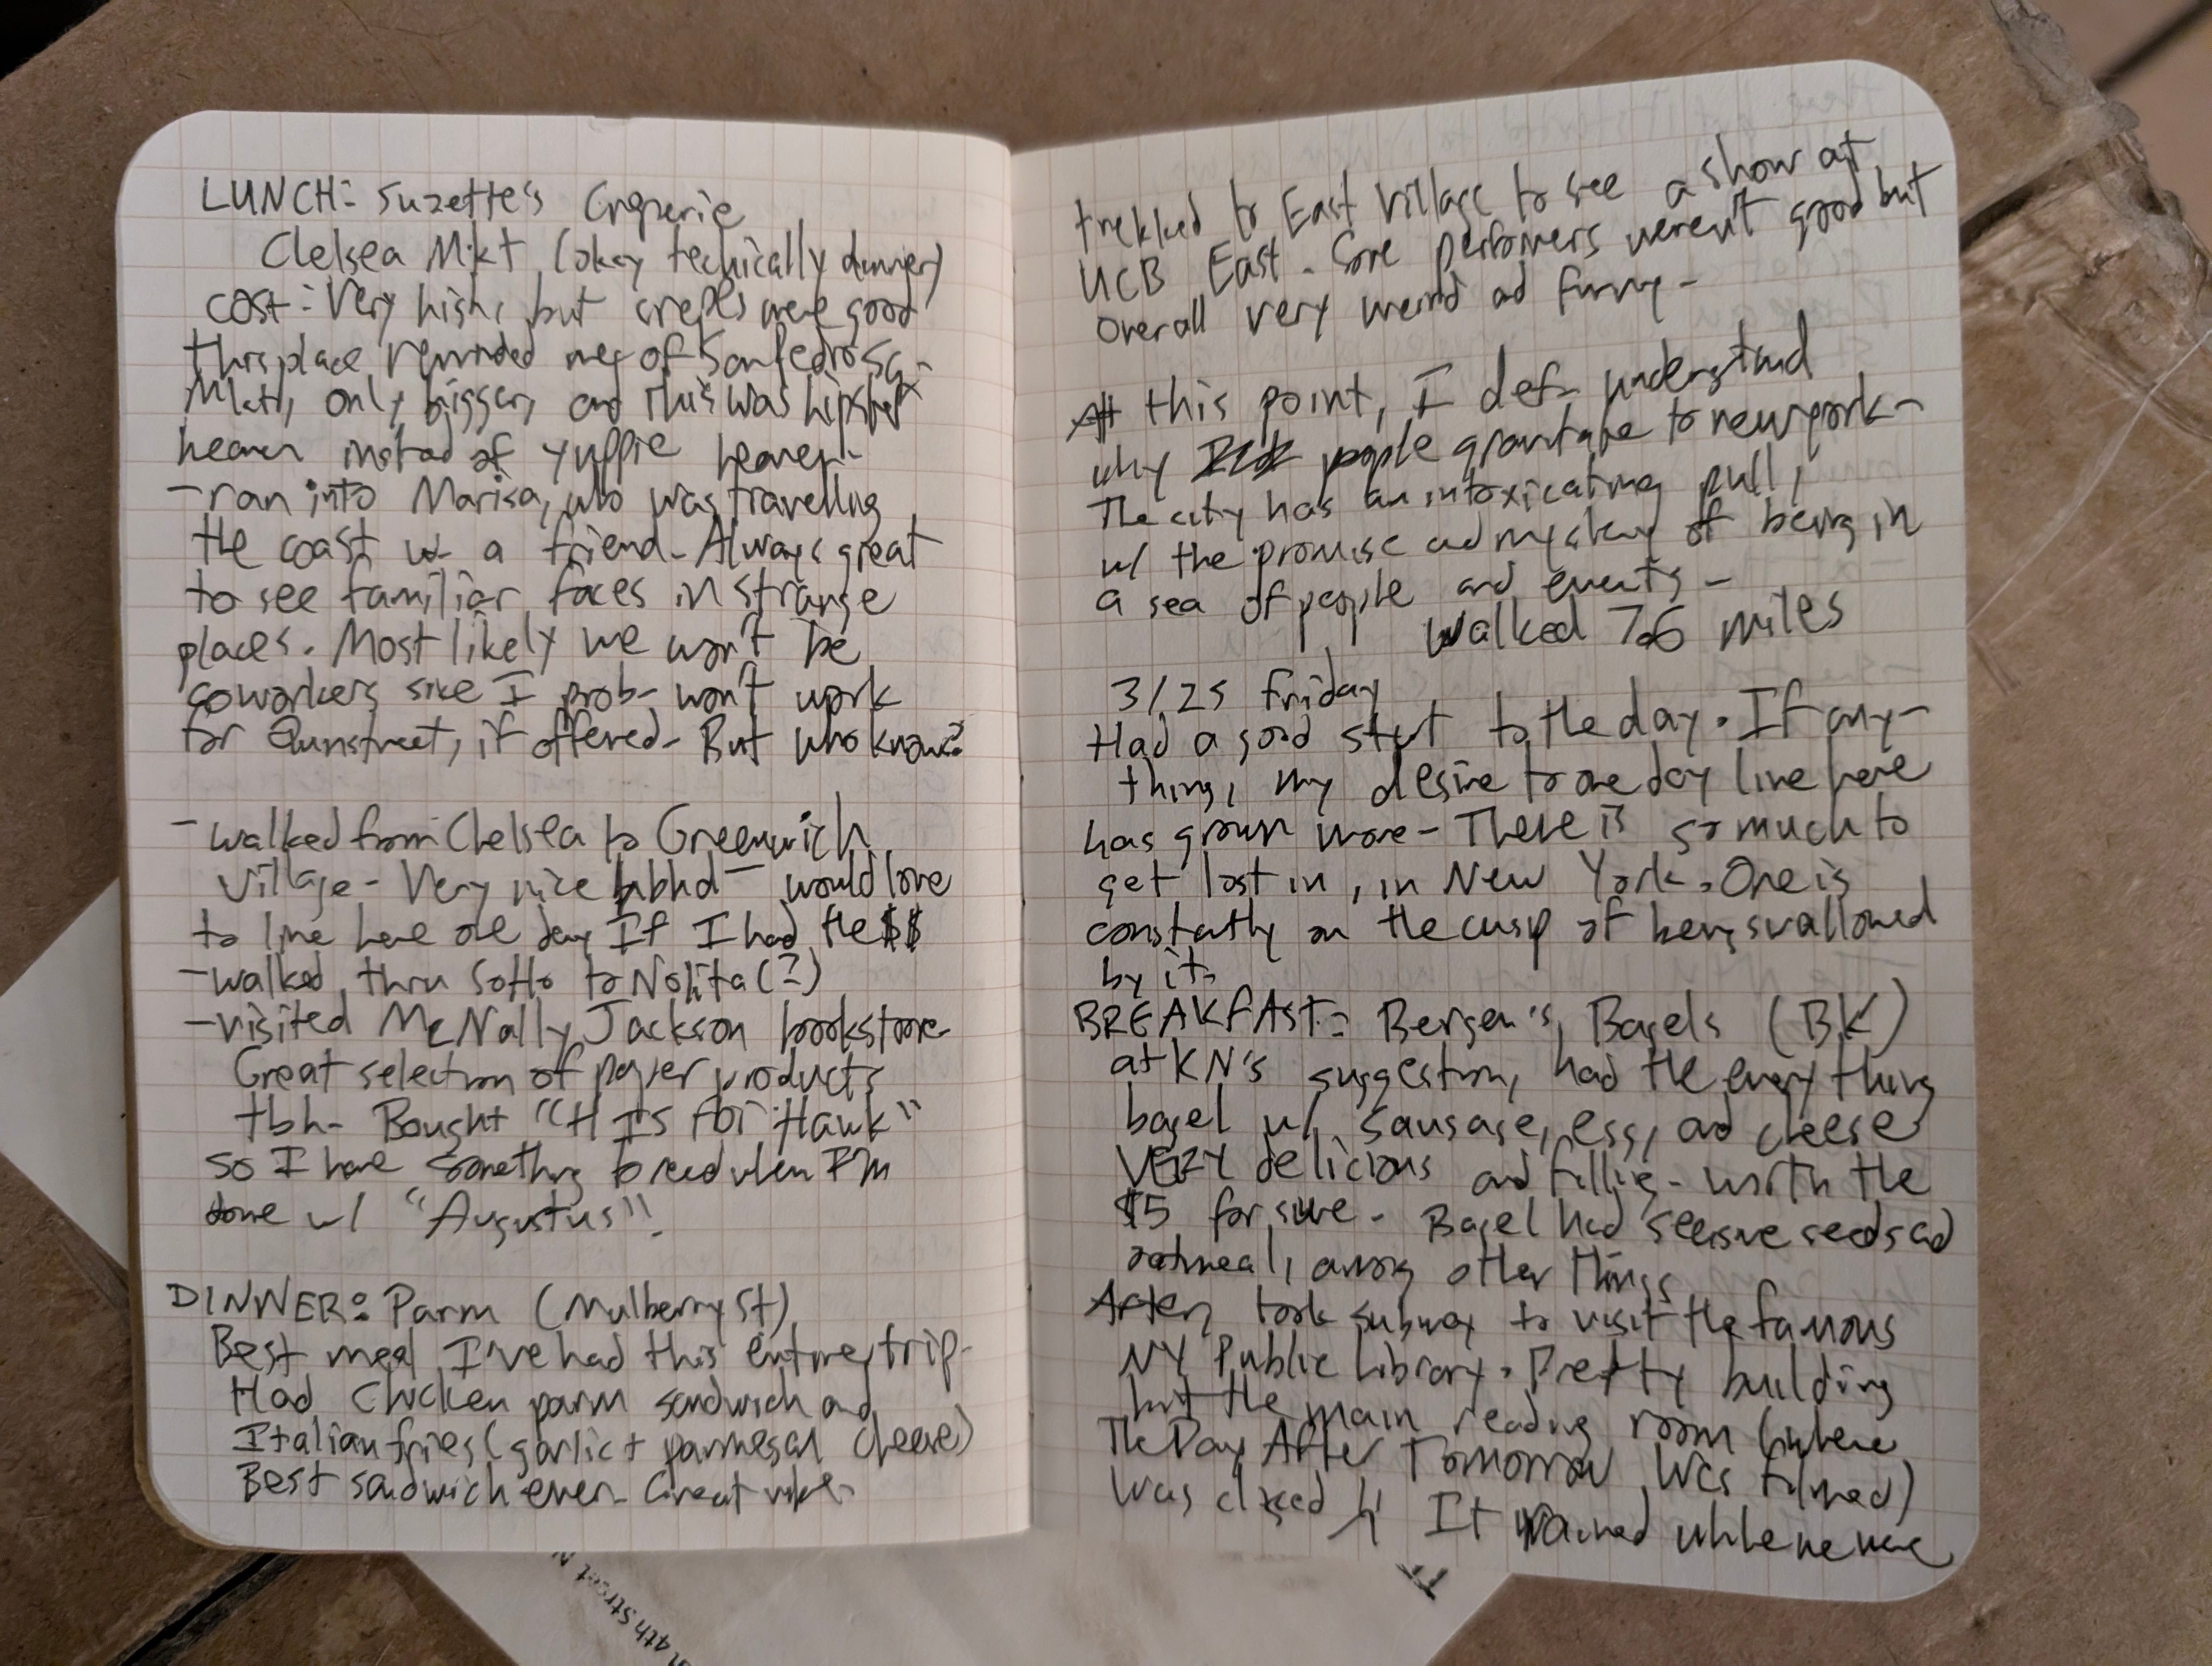 LUNCH: Suzette's Creperie
Chelsea Mkt (okay techically dinner)
cost: Very high, but crepes were good
this place reminded me of San Pedro Sq.
Mkt, only bigger, and this was hipster
heaven instead of yuppie heaven.
- ran into Marisa, who was travelling
the coast w a friend. Always great
to see familiar faces in strange
places. Most likely we won't be
coworkers since I prob. won't work
for , if offered. But who knows?
- walked from Chelsea to Greenwich
Village. Very nice nbhd - would love
to live here one day If I had the $$
- walked thru SoHo to Nolita (?)
- visited McNally Jackson bookstore
Great selection of paper products
tbh. Bought "H Is For Hawk"
so I have something to read when I'm
done w/ "Augustus".
DINNER: Parm (Mulberry St)
Best meal I've had this entire trip.
Had chicken parm sandwich and
Italian fries (garlic + parmesan cheese)
Best sandwich ever. Great vibe.
trekked to East Village to see a show at
UCB East. Some performers weren't good but
overall very weird and funny.
At this point, I def. understand
why people gravitate to new york.
The city has an intoxicating pull,
w/ the promise and mystery of being in
a sea of people and events.
Walked 7.6 miles
3/25 Friday
Had a good start to the day. If any-
thing, my desire to one day live here
has grown more. There is so much to
get lost in, in New York. One is
constantly on the cusp of being swallowed
by it.
BREAKFAST: Bergen's Bagels (BK)
at KN's suggestion, had the everything
bagel w/ sausage, egg, and cheese
VERY delicious and filling. worth the
$5 for sure. Bagel had sesame seeds and
oatmeal, among other things
After, took subway to visit the famous
NY Public Library. Pretty building
but the main reading room (where
The Day After Tomorrow was filmed)
was closed :( It rained while we were
4th Street N